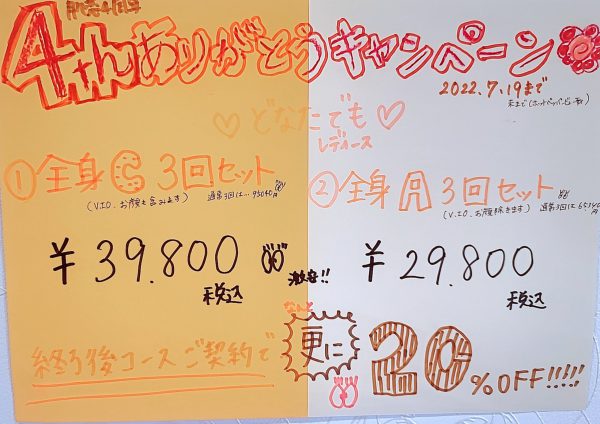 脱売4周年
4さんありがとうキャンペーン
2022.7.19まで
♡どなたでも♡
レディース
①全身C3回セット
(V.I.O、お顔も含みます) 通常3回は…95040円
②全身A3回セット
(V.I.O、お顔除きます) 通常3回は…65340円
¥39.800
税込
激安!!
¥29.800
税込
なんと
終了後コースご契約で
更に
20%OFF!!!!!